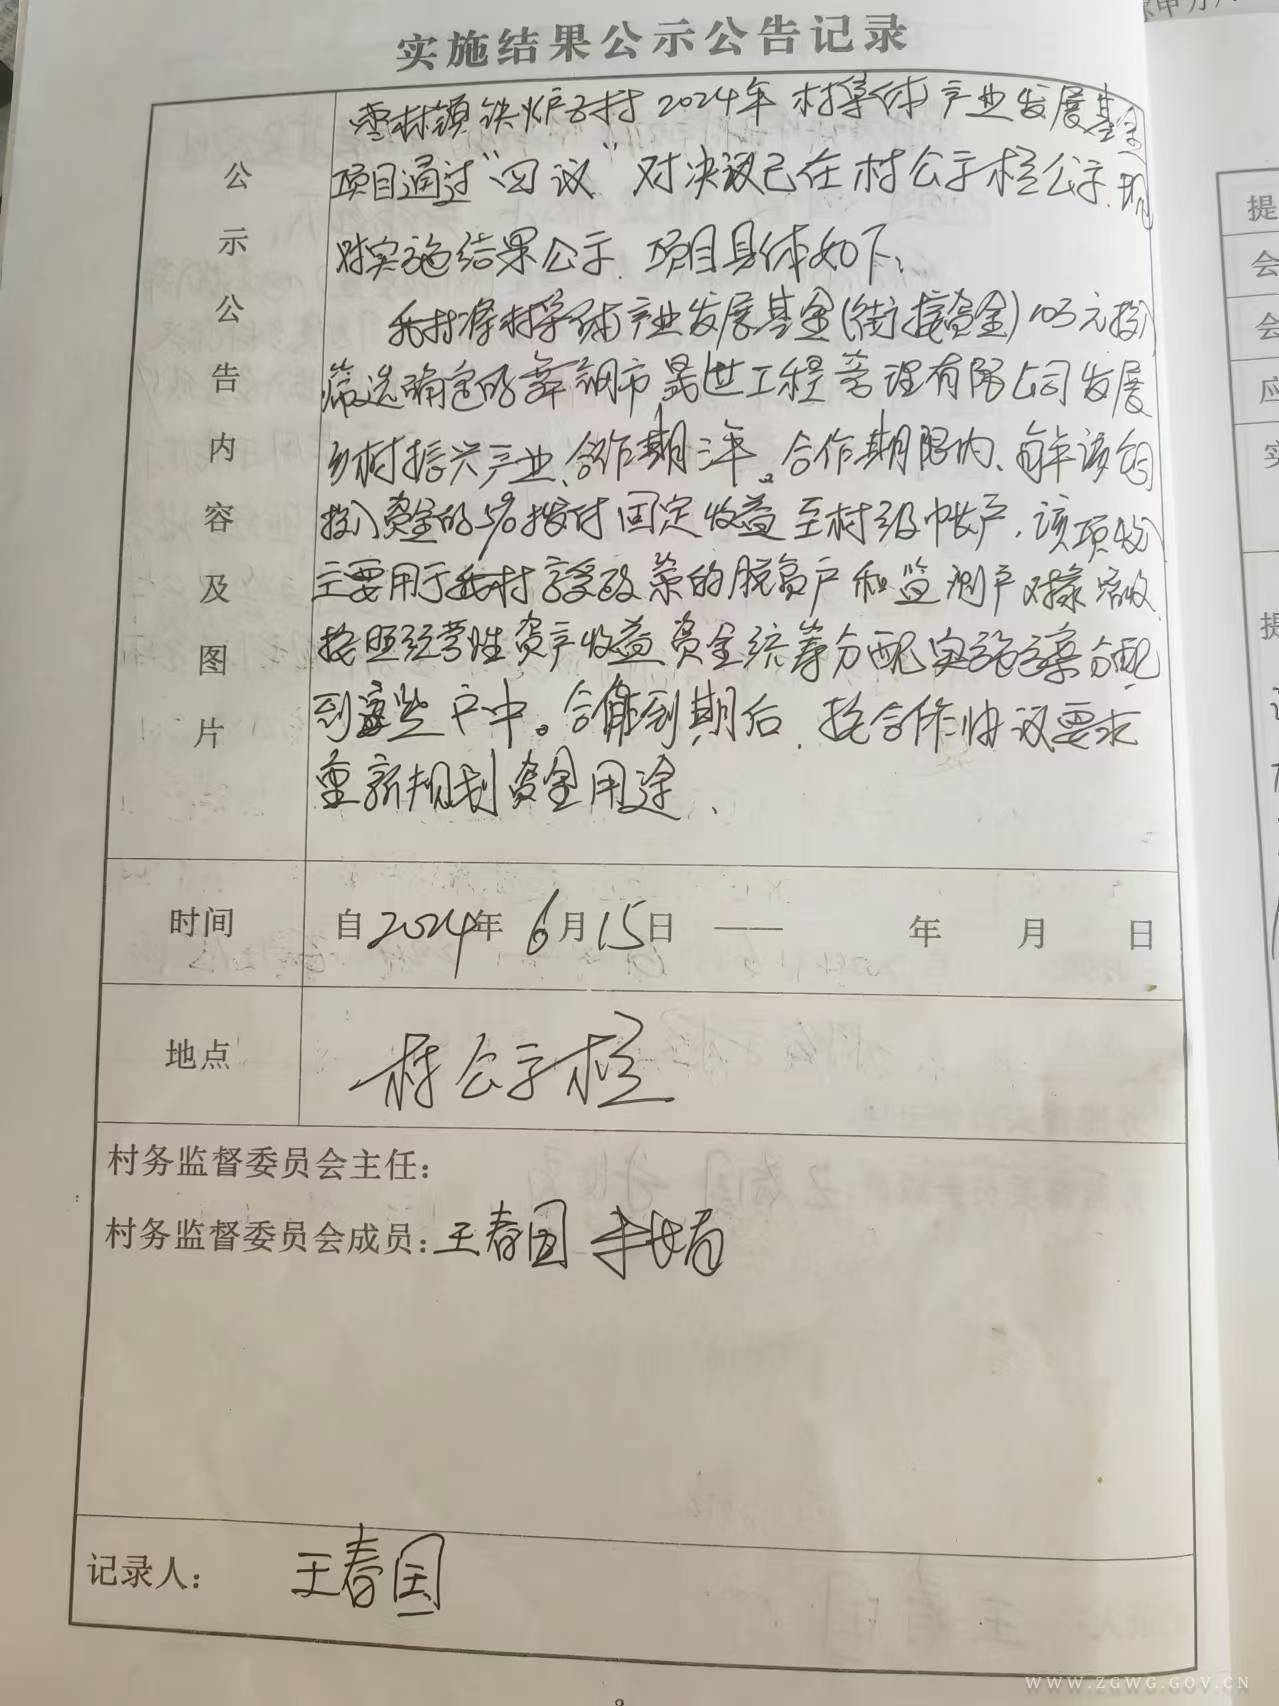 实施结果公示公告记录
公示公告内容及图片
雪村镇铁炉子村2024年村集体产业发展基金
项目通过“四议”对决议已在村公示栏公示,现
对实施结果公示,项目具体如下:
我村将村集体产业发展基金(衔接资金)103万元投入
筛选确定的舞钢市晟世工程管理有限公司发展
乡村振兴产业,合作期三年。合作期限内,每年该公司
投入资金的5%拨付固定收益至村级帐户,该项收入
主要用于我村享受政策的脱贫户和监测户对象增收
按照经营性资产收益资金统筹分配实施方案分配
到这些户中。合作到期后,按合作协议要求
重新规划资金用途、
时间 自2024年6月15日 —— 年 月 日
地点 村公示栏
村务监督委员会主任:
村务监督委员会成员:王春国
记录人: 王春国
WWW.ZGWG.GOV.CN